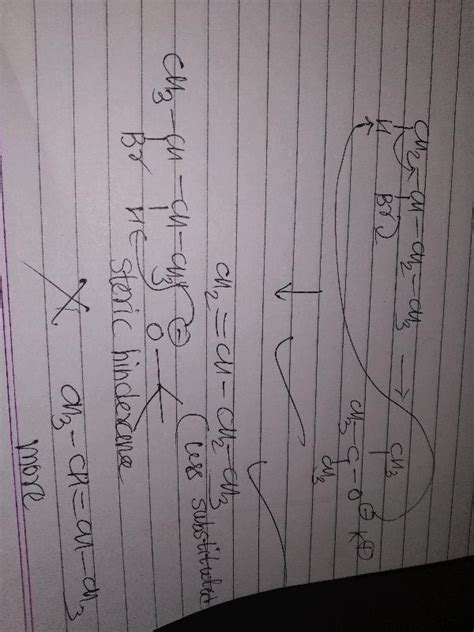 CH2-CH-CH2-CH3 →
H Br
CH3
CH3-C-O⊖ K⊕
CH3
↓
CH2=CH-CH2-CH3 ✓
(less substituted ✓
CH3-CH-CH-CH3 ⊖
Br H O
steric hinderance
X CH3-CH=CH-CH3
more